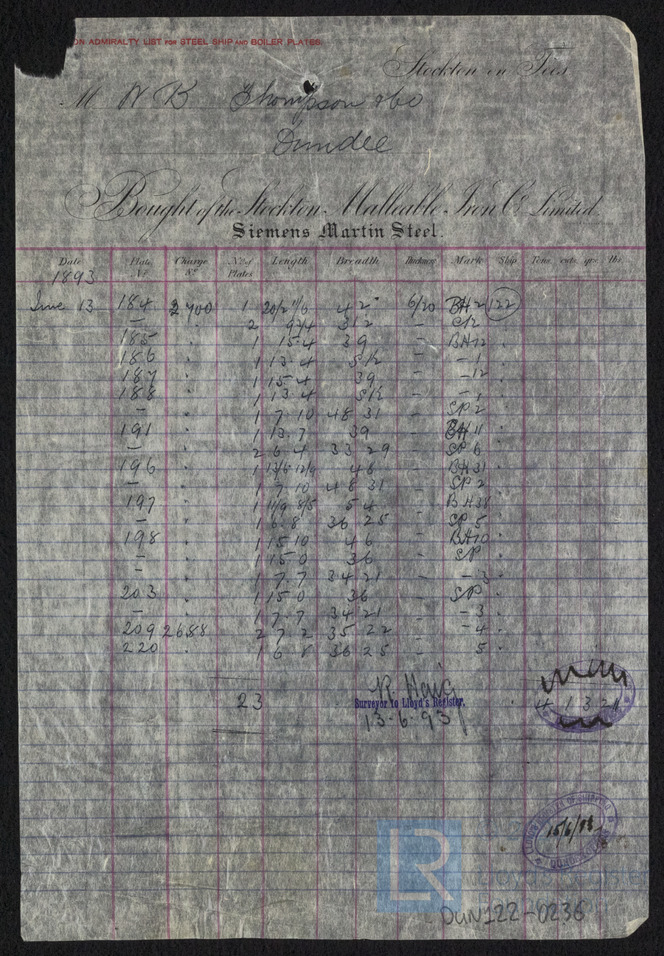 ON ADMIRALTY LIST FOR STEEL SHIP AND BOILER PLATES
Stockton on Tees
M W B Thompson & Co
Dundee
Bought of the Stockton Malleable Iron Co Limited.
Siemens Martin Steel.
Date Plate No Charge No No of Plates Length Breadth Thickness Mark Ship Tons cwts qrs lbs.
1893
June 13 184 2700 1 20/2 11/6 42 6/20 BH 2 122
– " 2 9 3/4 31 2 – SP2
185 " 1 15 4 39 – BH12
186 " 1 13 4 51 1/2 – – 1
187 " 1 15 4 39 – – 12
188 " 1 13 4 51 1/2 – – 1
– " 1 7 10 48 31 – SP 2
191 " 1 13 7 39 – BH 11
– " 2 6 4 33 29 – SP 6
196 " 1 13/6 12/9 46 – BH31
– " 1 7 10 48 31 – SP 2
197 " 1 11/9 8/5 54 – BH38
– " 1 6 8 36 25 – SP 5
198 " 1 15 10 46 – BH10
– " 1 15 0 36 – SP
– " 1 7 7 34 21 – – 3
203 " 1 15 0 36 – SP
– " 1 7 7 34 21 – – 3
209 2688 2 7 2 35 22 – – 4
220 " 1 6 8 36 25 – 5
23
Surveyor to Lloyd's Register.
13-6-93
15/6/93
LR
DUN122-0236